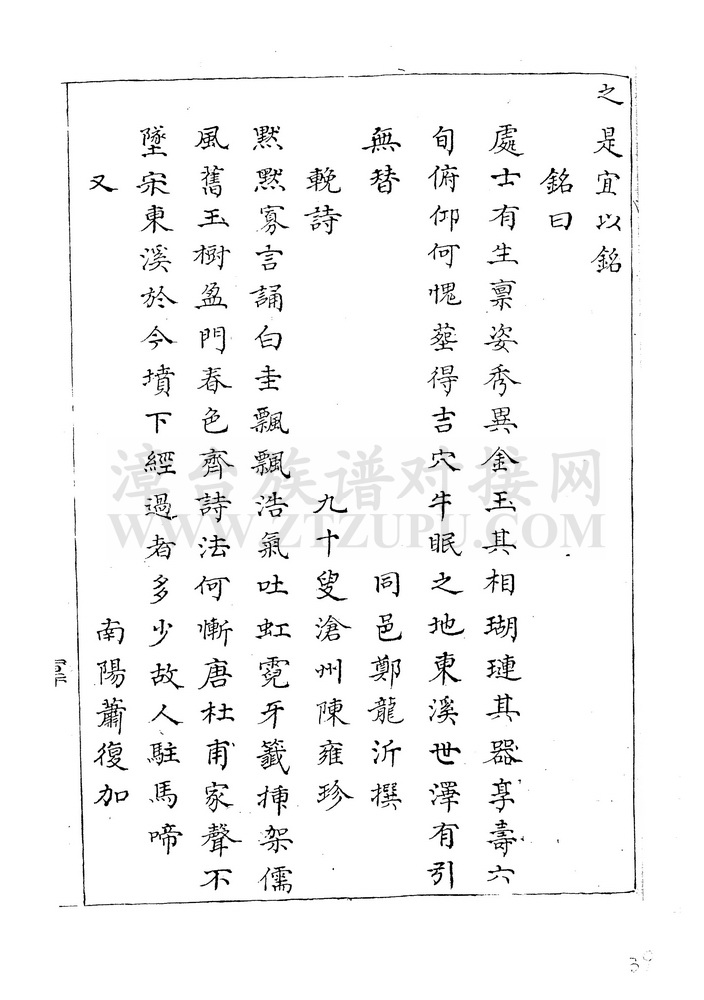 之是宜以銘
銘曰
處士有生禀姿秀異金玉其相瑚璉其器享壽六
旬俯仰何愧塟得吉穴牛眠之地東溪世澤有引
無替
同邑鄭龍沂撰
輓詩
九十叟滄州陳雍珍
默默寡言誦白圭飄飄浩氣吐虹霓牙籤揷架儒
風舊玉樹盈門春色齊詩法何慚唐杜甫家聲不
墜宋東溪於今墳下經過者多少故人駐馬啼
又
南陽蕭復加
漳台族谱对接网
WWW.ZTZUPU.COM
39